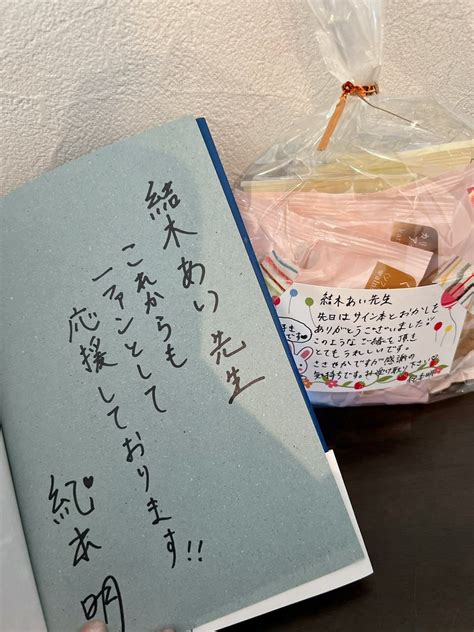 結木あい先生
これからも
一ファンとして
応援しております!!
紀本明
結木あい先生
先日はサイン本とおかしを
ありがとうございました
このようなご縁を頂き
とてもうれしいです。
ささやかですが感謝の
気持ちです。お受け取り下さい